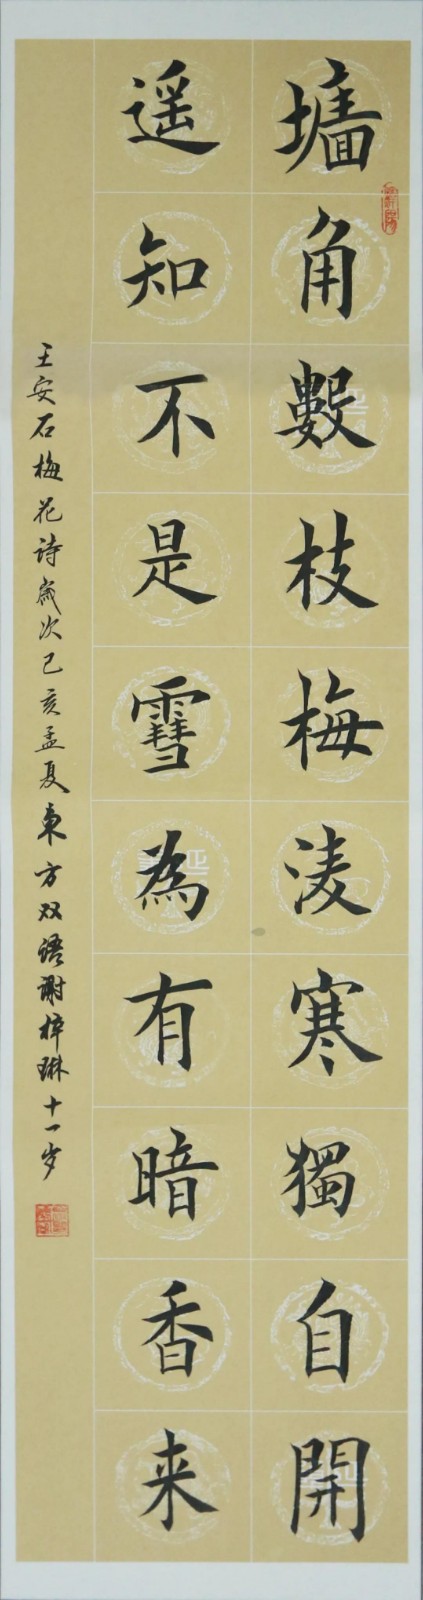 墻角數枝梅淩寒獨自開
遥知不是雪為有暗香来
王安石梅花诗歲次己亥孟夏東方双语谢梓琳十一岁